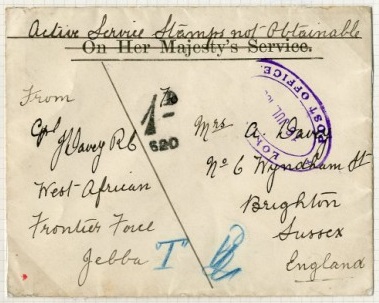 Active Service Stamps not Obtainable
On Her Majesty's Service.
From
Cpl J Davey R.E
West African
Frontier Force
Jebba
To
Mrs A. Davey
No 6 Wyndham St
Brighton
Sussex
England
1-
620
"T"
POST OFFICE
JUL